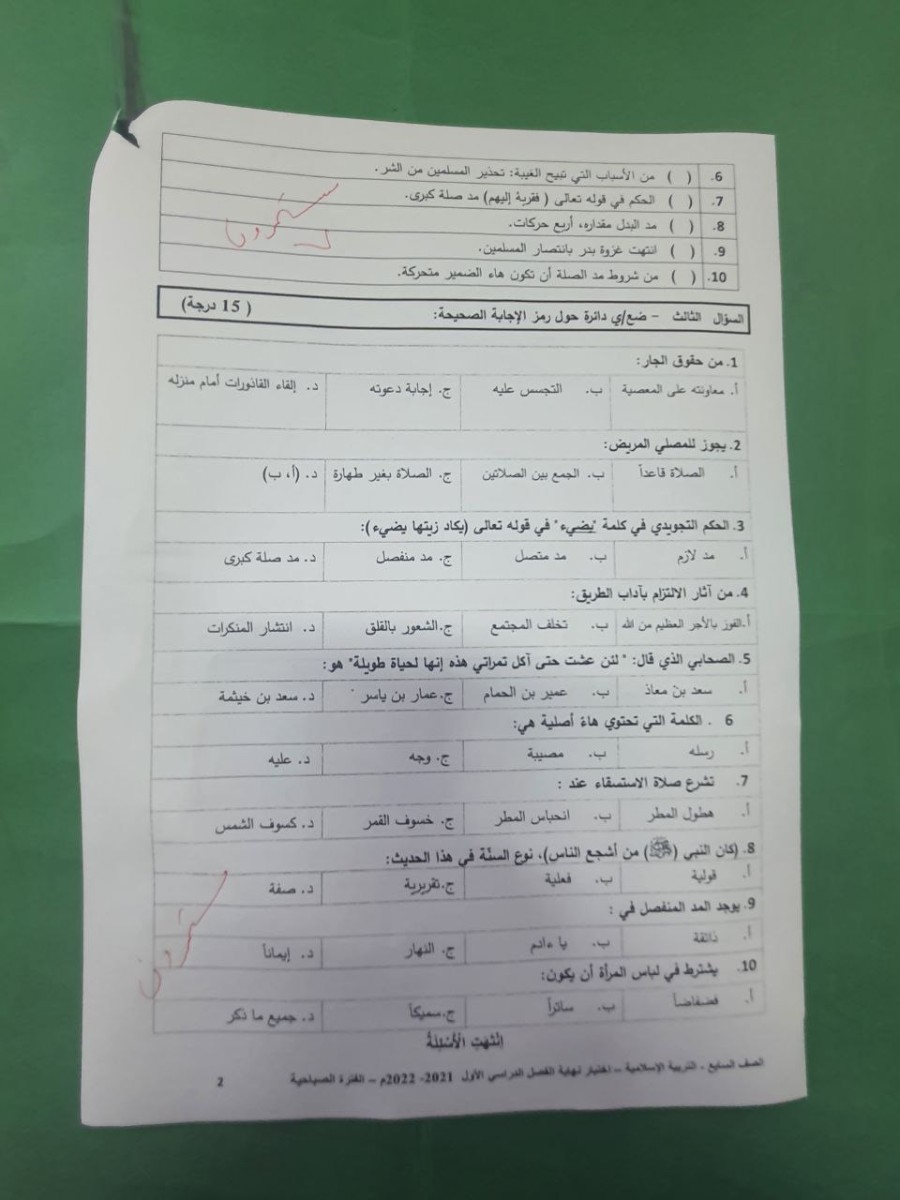 6. ( ) من الأسباب التي تبيح الغيبة: تحذير المسلمين من الشر.
7. ( ) الحكم في قوله تعالى ( فقربة إليهم) مد صلة كبرى.
8. ( ) مد البدل مقداره، أربع حركات.
9. ( ) انتهت غزوة بدر بانتصار المسلمين.
10. ( ) من شروط مد الصلة أن تكون هاء الضمير متحركة.
السؤال الثالث - ضع/ي دائرة حول رمز الإجابة الصحيحة: ( 15 درجة)
1. من حقوق الجار:
أ. معاونته على المعصية ب. التجسس عليه ج. إجابة دعوته د. إلقاء القاذورات أمام منزله
2. يجوز للمصلي المريض:
أ. الصلاة قاعداً ب. الجمع بين الصلاتين ج. الصلاة بغير طهارة د. (أ، ب)
3. الحكم التجويدي في كلمة "يضيء" في قوله تعالى (يكاد زيتها يضيء):
أ. مد لازم ب. مد متصل ج. مد منفصل د. مد صلة كبرى
4. من آثار الالتزام بآداب الطريق:
أ.الفوز بالأجر العظيم من الله ب. تخلف المجتمع ج.الشعور بالقلق د. انتشار المنكرات
5. الصحابي الذي قال: " لئن عشت حتى آكل تمراتي هذه إنها لحياة طويلة" هو:
أ. سعد بن معاذ ب. عمير بن الحمام ج.عمار بن ياسر د. سعد بن خيثمة
6 . الكلمة التي تحتوي هاءً أصلية هي:
أ. رسله ب. مصيبة ج. وجه د. عليه
7. تشرع صلاة الاستسقاء عند :
أ. هطول المطر ب. انحباس المطر ج. خسوف القمر د. كسوف الشمس
8. (كان النبي (ﷺ) من أشجع الناس)، نوع السنّة في هذا الحديث:
أ. قولية ب. فعلية ج.تقريرية د. صفة
9. يوجد المد المنفصل في :
أ. ذائقة ب. يا ءادم ج. النهار د. إيماناً
10. يشترط في لباس المرأة أن يكون:
أ. فضفاضاً ب. ساتراً ج.سميكاً د. جميع ما ذكر
اِنْتَهَتِ الْأَسْئِلَةُ
الصف السابع - التربية الإسلامية – اختبار نهاية الفصل الدراسي الأول 2021- 2022م – الفترة الصباحية 2